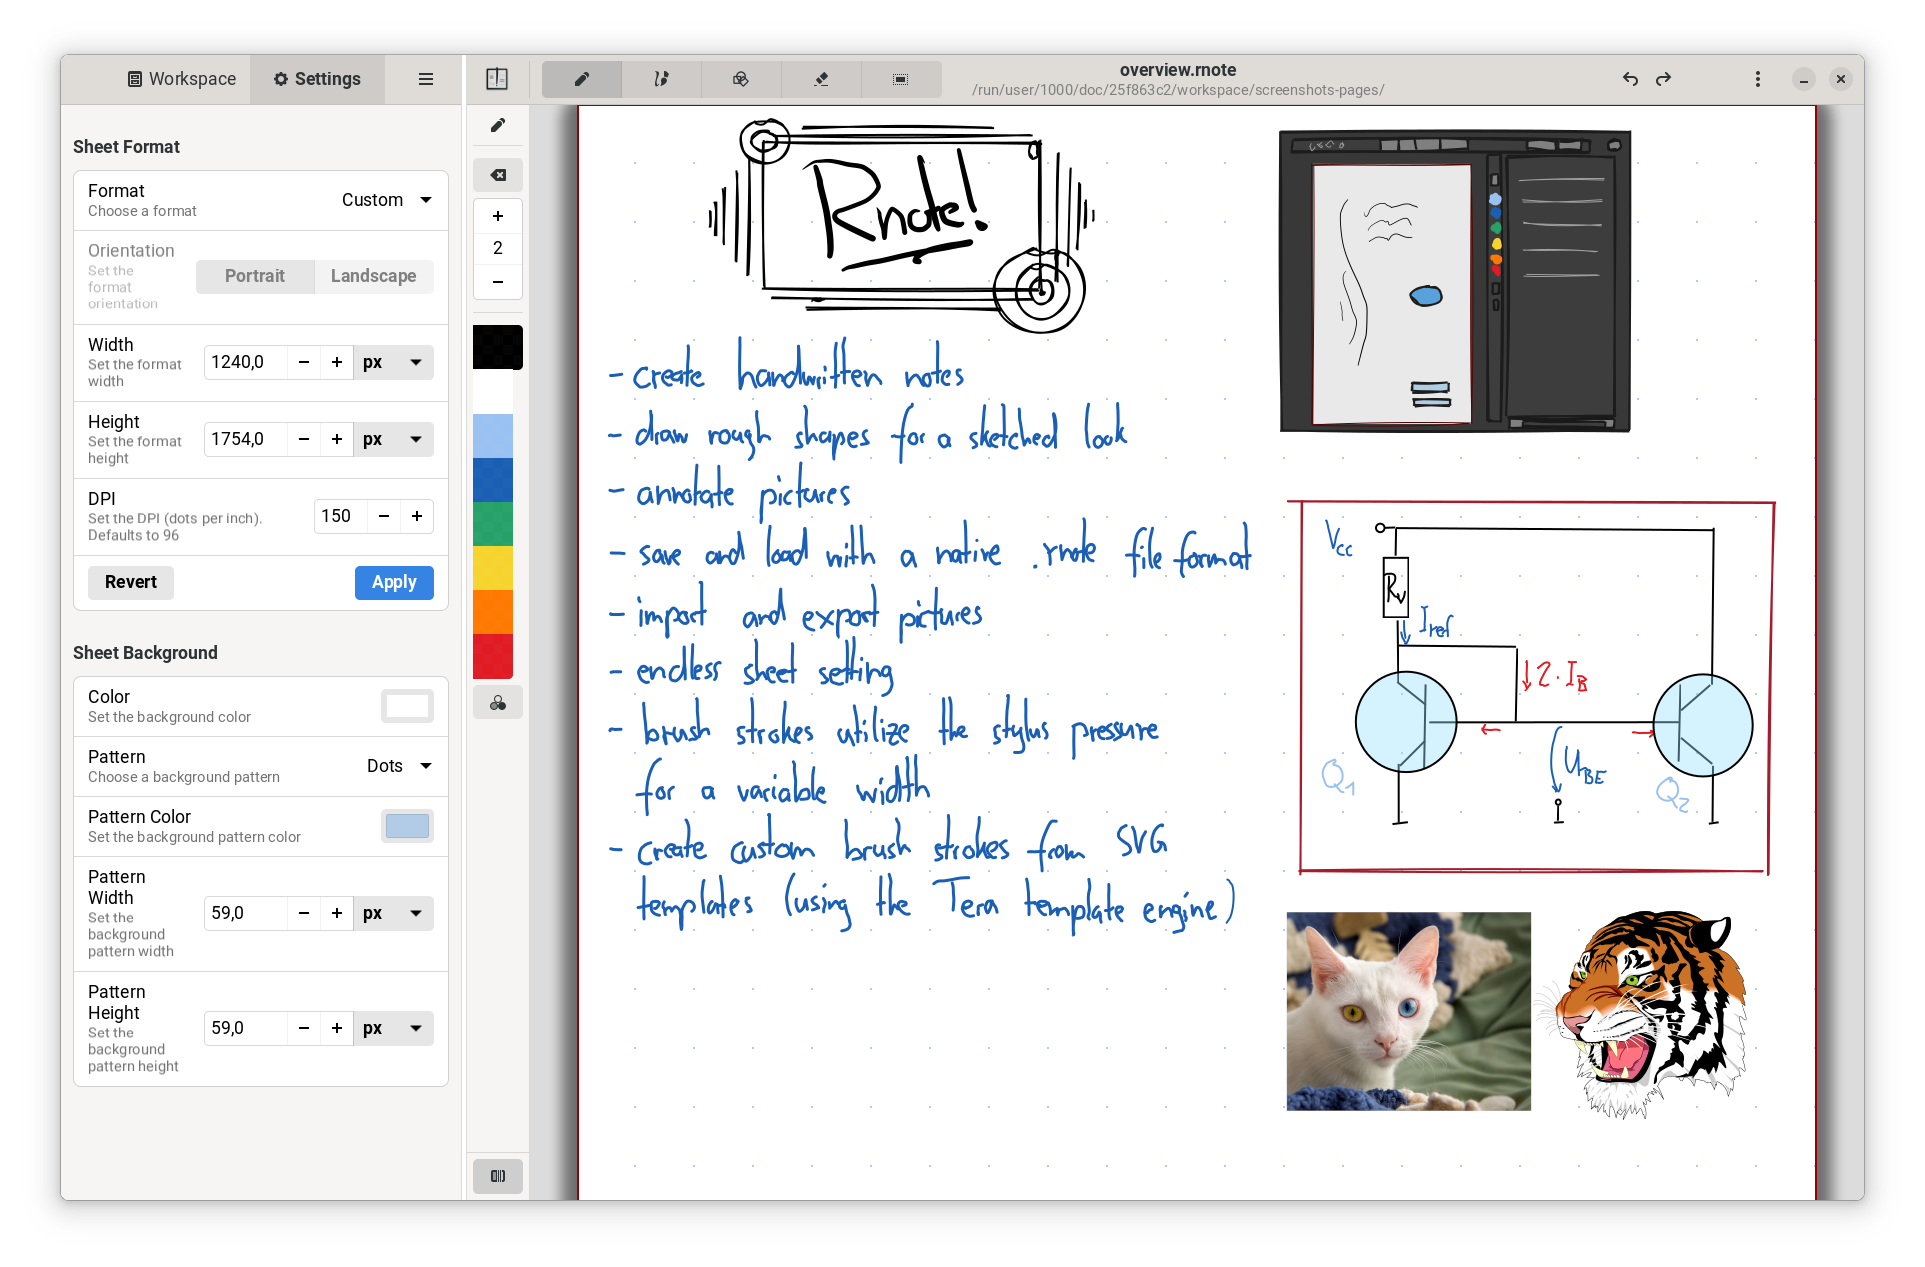 Workspace
Settings
overview.rnote
/run/user/1000/doc/25f863c2/workspace/screenshots-pages/
Sheet Format
Format
Choose a format
Custom
Orientation
Set the
format
orientation
Portrait
Landscape
Width
Set the format
width
1240,0
px
Height
Set the format
height
1754,0
px
DPI
Set the DPI (dots per inch).
Defaults to 96
150
Revert
Apply
Sheet Background
Color
Set the background color
Pattern
Choose a background pattern
Dots
Pattern Color
Set the background pattern color
Pattern
Width
Set the
background
pattern width
59,0
px
Pattern
Height
Set the
background
pattern height
59,0
px
2
Rnote!
- create handwritten notes
- draw rough shapes for a sketched look
- annotate pictures
- save and load with a native .rnote file format
- import and export pictures
- endless sheet setting
- brush strokes utilize the stylus pressure
for a variable width
- create custom brush strokes from SVG
templates (using the Tera template engine)
Vcc
Rv
Iref
2·IB
UBE
Q1
Q2